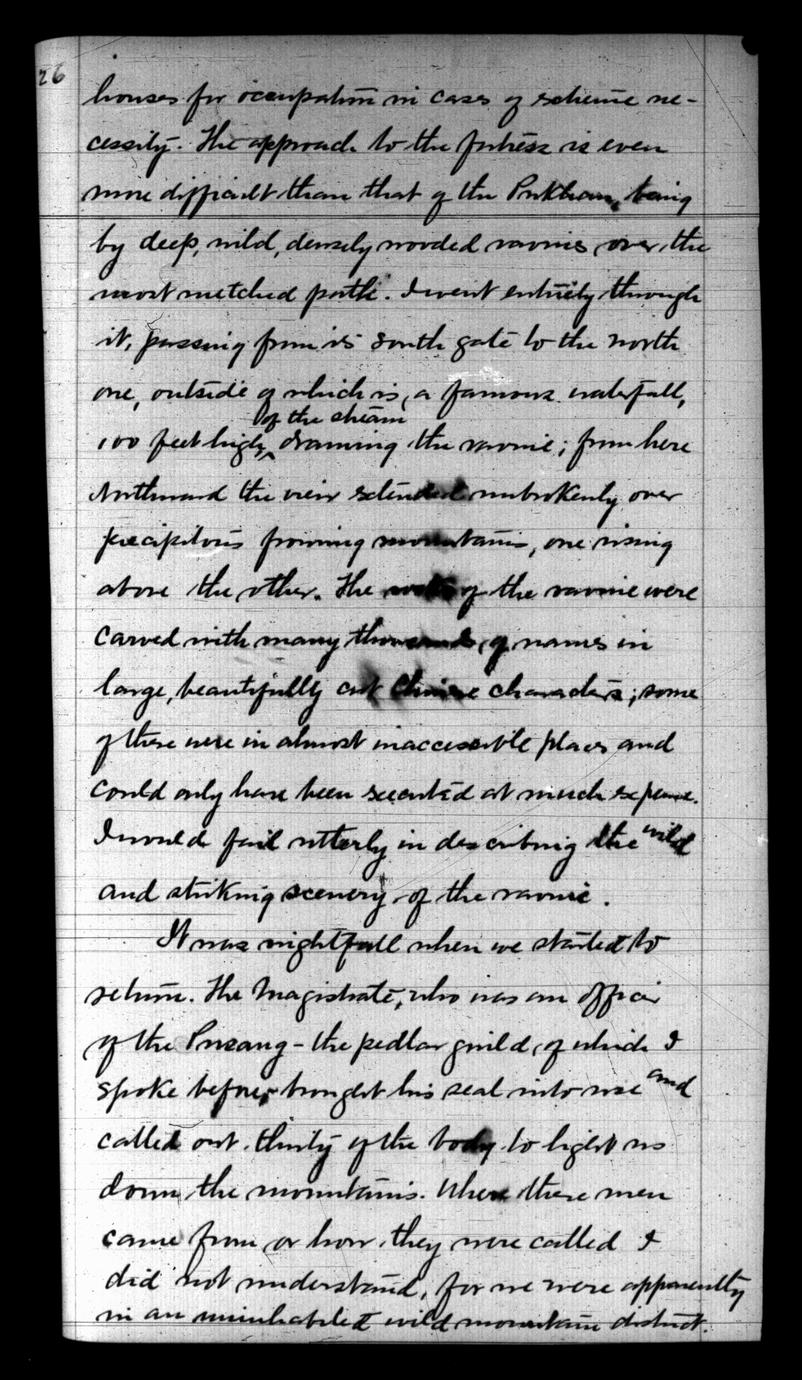 26
houses for occupation in cases of extreme ne-
cessity. The approach to the fortress is even
more difficult than that of the Pukhan, being
by deep, wild, densely wooded ravines over the
most wretched path. I went entirely through
it, passing from its South gate to the north
one, outside of which is, a famous waterfall,
of the stream
100 feet high, draining the ravine; from here
Northward the view extended unbrokenly over
precipitous frowning mountains, one rising
above the other. The of the ravine were
carved with many thousands of names in
large, beautifully cut Chinese characters; some
of these were in almost inaccessible places and
could only have been executed at much expense.
I would fail utterly in describing the wild
and striking scenery of the ravine.
It was nightfall when we started to
return. The Magistrate, who was an officer
of the Pusang - the pedlar guild, of which I
spoke before, brought his seal into use and
called out thirty of the body to light us
down the mountains. Where these men
came from or how they were called I
did not understand, for we were apparently
in an uninhabited wild mountain district.